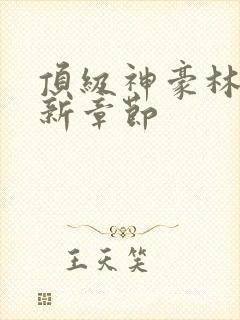 頂級神豪林
新章節
王天笑